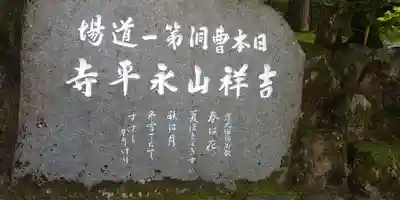 日本曹洞第一道場
吉祥山永平寺
春は花
夏ほととぎす
秋は月
冬雪さえて
すずし
かりけり